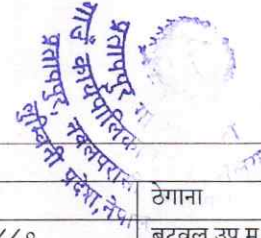 प्रतापपुर गा
गाउँ कार्यपालिका
प्रतापपुर, नवलपरासी
लुम्बिनी प्रदेश, नेपाल
ठेगाना
बुटवल उप म